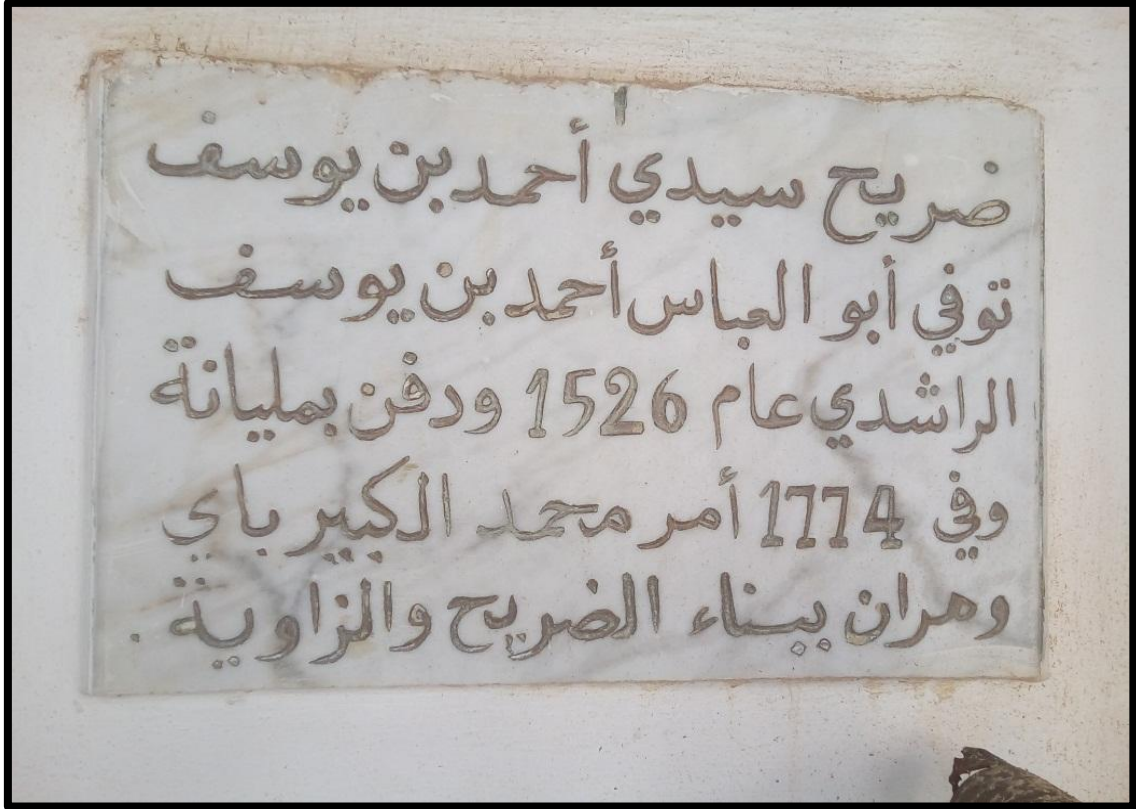 ضريح سيدي أحمد بن يوسف
توفي أبو العباس أحمد بن يوسف
الراشدي عام 1526 ودفن بمليانة
وفي 1774 أمر محمد الكبير باي
وهران ببناء الضريح والزاوية .